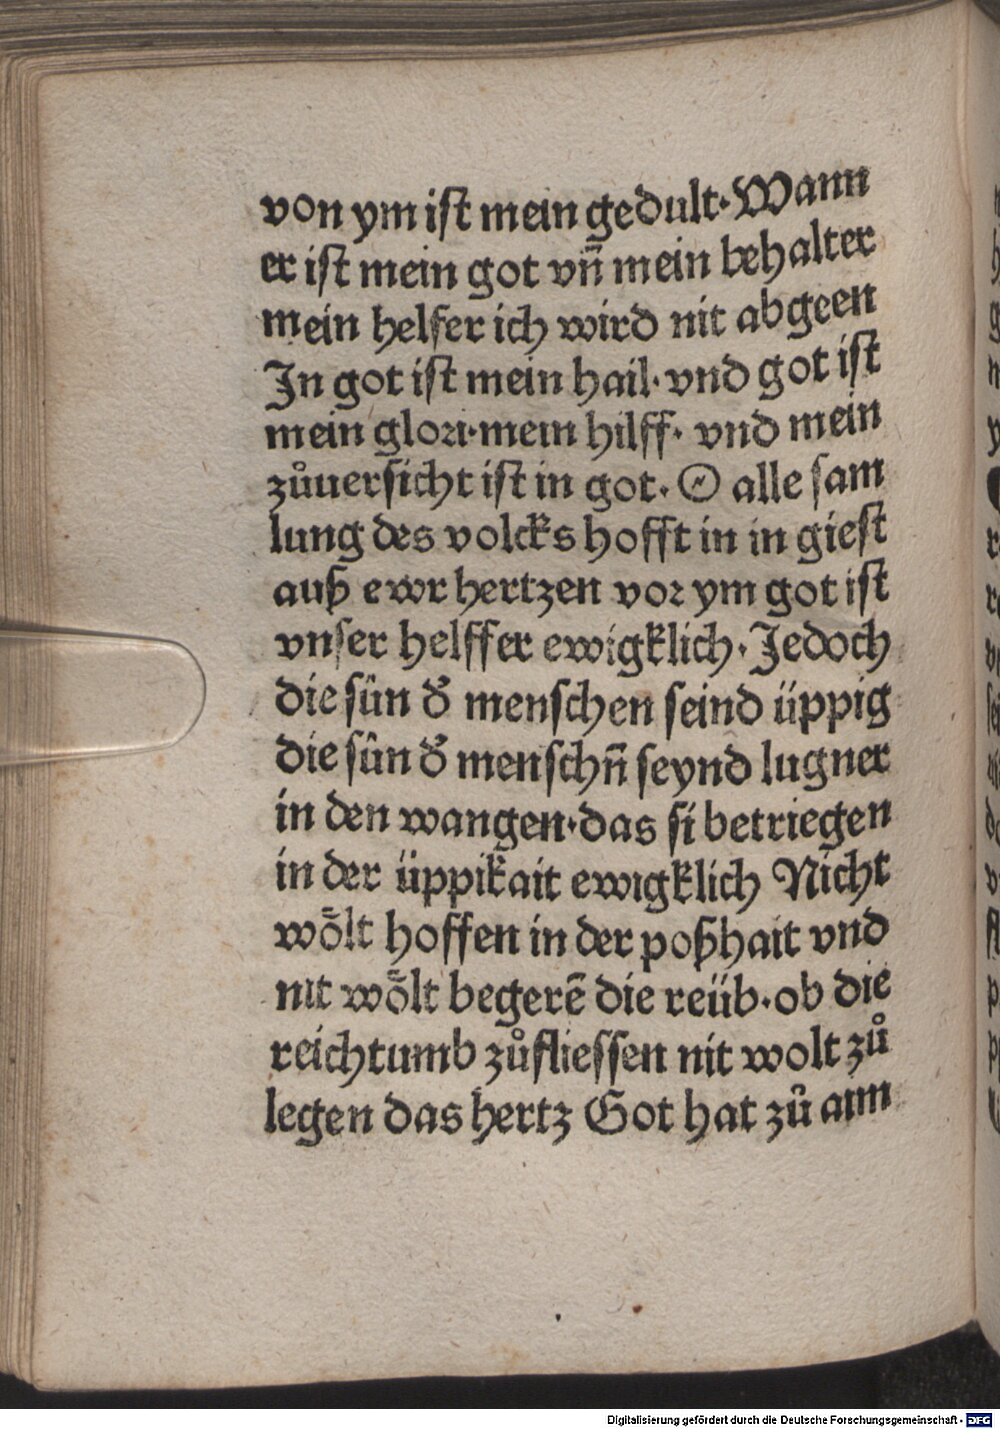 von ym ist mein gedult·Wann
er ist mein got vn̄ mein behalter
mein helfer ich wird nit abgeen
In got ist mein hail·vnd got ist
mein glori·mein hilff· vnd mein
zůuersicht ist in got. O alle sam
lung des volcks hofft in in giest
auß ewr hertzen vor ym got ist
vnser helffer ewigklich. Jedoch
die sün dˀ menschen seind üppig
die sün dˀ menschn̄ seynd lugner
in den wangen·das si betriegen
in der üppikait ewigklich Nicht
woͤlt hoffen in der poßhait vnd
nit woͤlt begerē die reüb·ob die
reichtumb zůfliessen nit wolt zů
legen das hertz Got hat zů aim
Digitalisierung gefördert durch die Deutsche Forschungsgemeinschaft - DFG